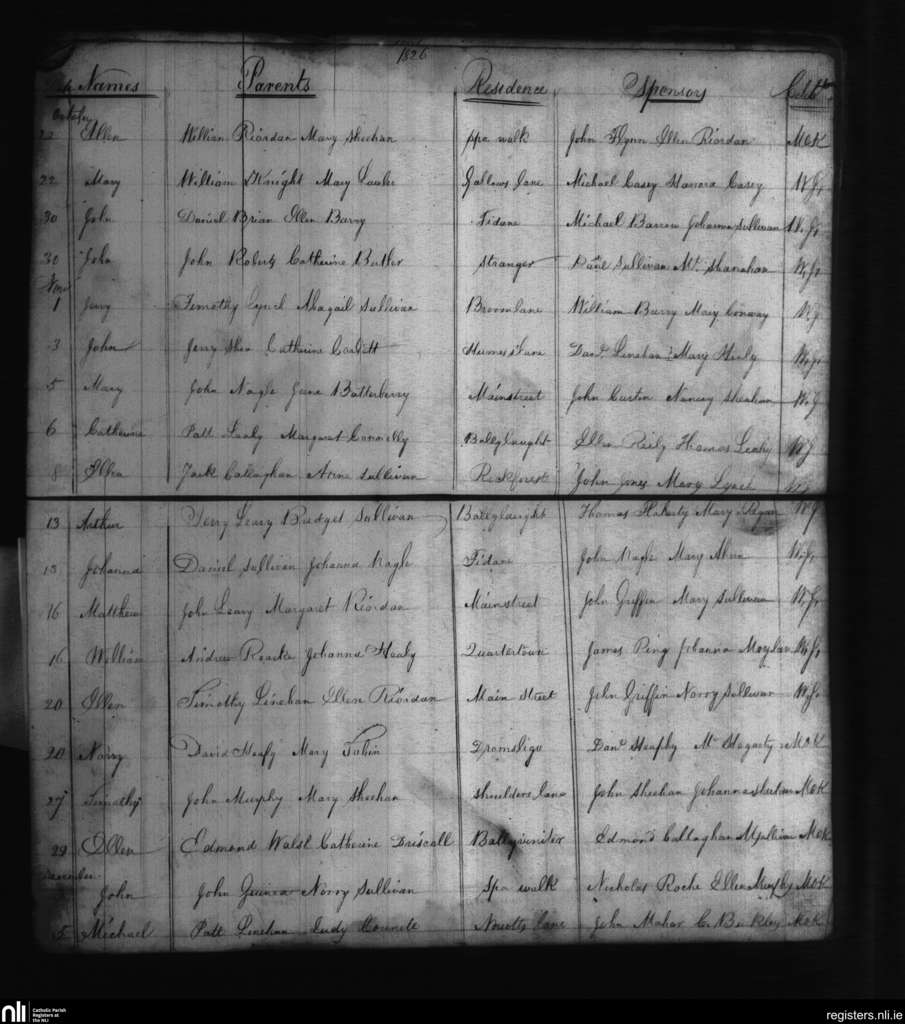 1826
Names Parents Residence Sponsors Celebt
October
22 Ellen William Riordan Mary Sheehan Spa walk John Flynn Ellen Riordan MOK
22 Mary William Knight Mary Lawler Gallows lane Michael Casey Hanora Casey W.J.
30 John Daniel Brian Ellen Barry Fidane Michael Barrow Johanna Sullivan W.J.
30 John John Roberts Catherine Butler Stranger Sullivan Mt. Shanahan W.J.
Nov
1 Jerry Timothy Lynch Abagail Sullivan Broomlane William Barry Mary Conway W.J
3 John Jerry Shea Catherine Corbett Humes Lane Danl. Linehan Mary Healy W.J.
5 Mary John Nagle Jane Batterberry Mainstreet John Curtin Nancey Sheehan W.J
6 Catherine Patt Leahy Margaret Connelly Ballylaught Ellen Reily Thomas Leahy W.J
8 Ellen Jack Callaghan Anne Sullivan Rockforest John Jones Mary Lynch W.J
13 Arthur Jerry Leary Bridget Sullivan Ballylaught Thomas Flaherty Mary Regan W.J
13 Johanna Daniel Sullivan Johanna Nagle Fidane John Nagle Mary W.J.
16 Matthew John Leary Margaret Riordan Mainstreet John Griffin Mary Sullivan W.J.
16 William Andrew Roache Johanna Healy Quartertown James Ring Johanna Moylan W.J.
20 Ellen Timothy Linehan Ellen Riordan Main Street John Griffin Norry Sullivan W.J.
20 Norry David Heafy Mary Tobin Dromsligo Danl. Heaphy Mt Hegarty MOK
27 Timothy John Murphy Mary Sheehan Shoulders lane John Sheehan Johanna Sheehan MOK
29 Ellen Edmond Walsh Catherine Driscoll Ballyviniter Edmond Callaghan M Sullivan MOK
December
John John Norry Sullivan Spa walk Nicholas Roche Ellen Murphy MOK
5 Michael Patt Linehan Judy Lane John Mahar C. Buckley MOK
nli Catholic Parish
Registers at
the NLI
registers.nli.ie